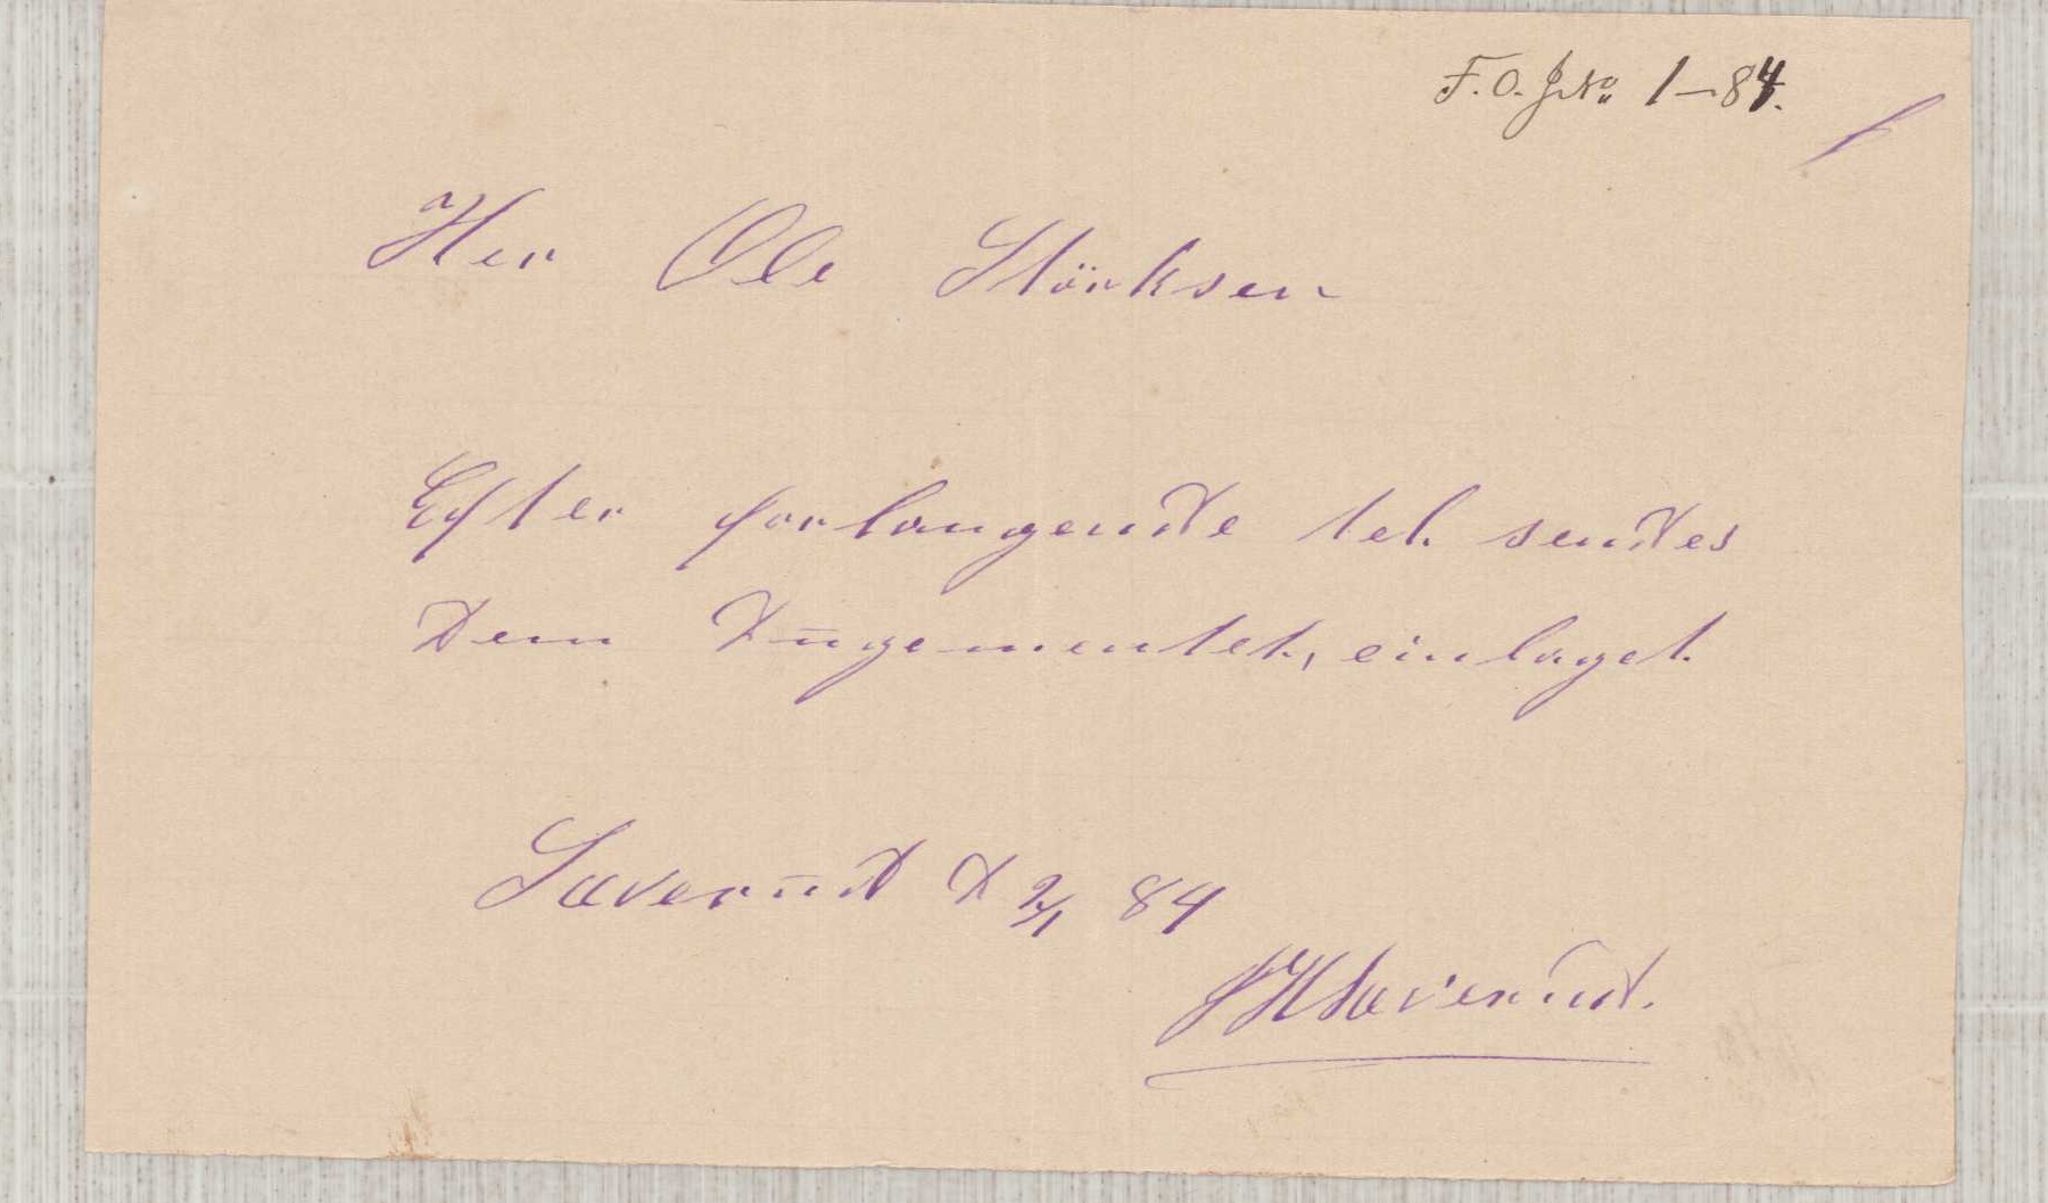 F. O. J No. 1-84.
Her Ole Störksen
Efter forlangende tel. sendes
Dem Dūgementet, einlaget.
Sæverūd d 2/1 84
Sæverūd.